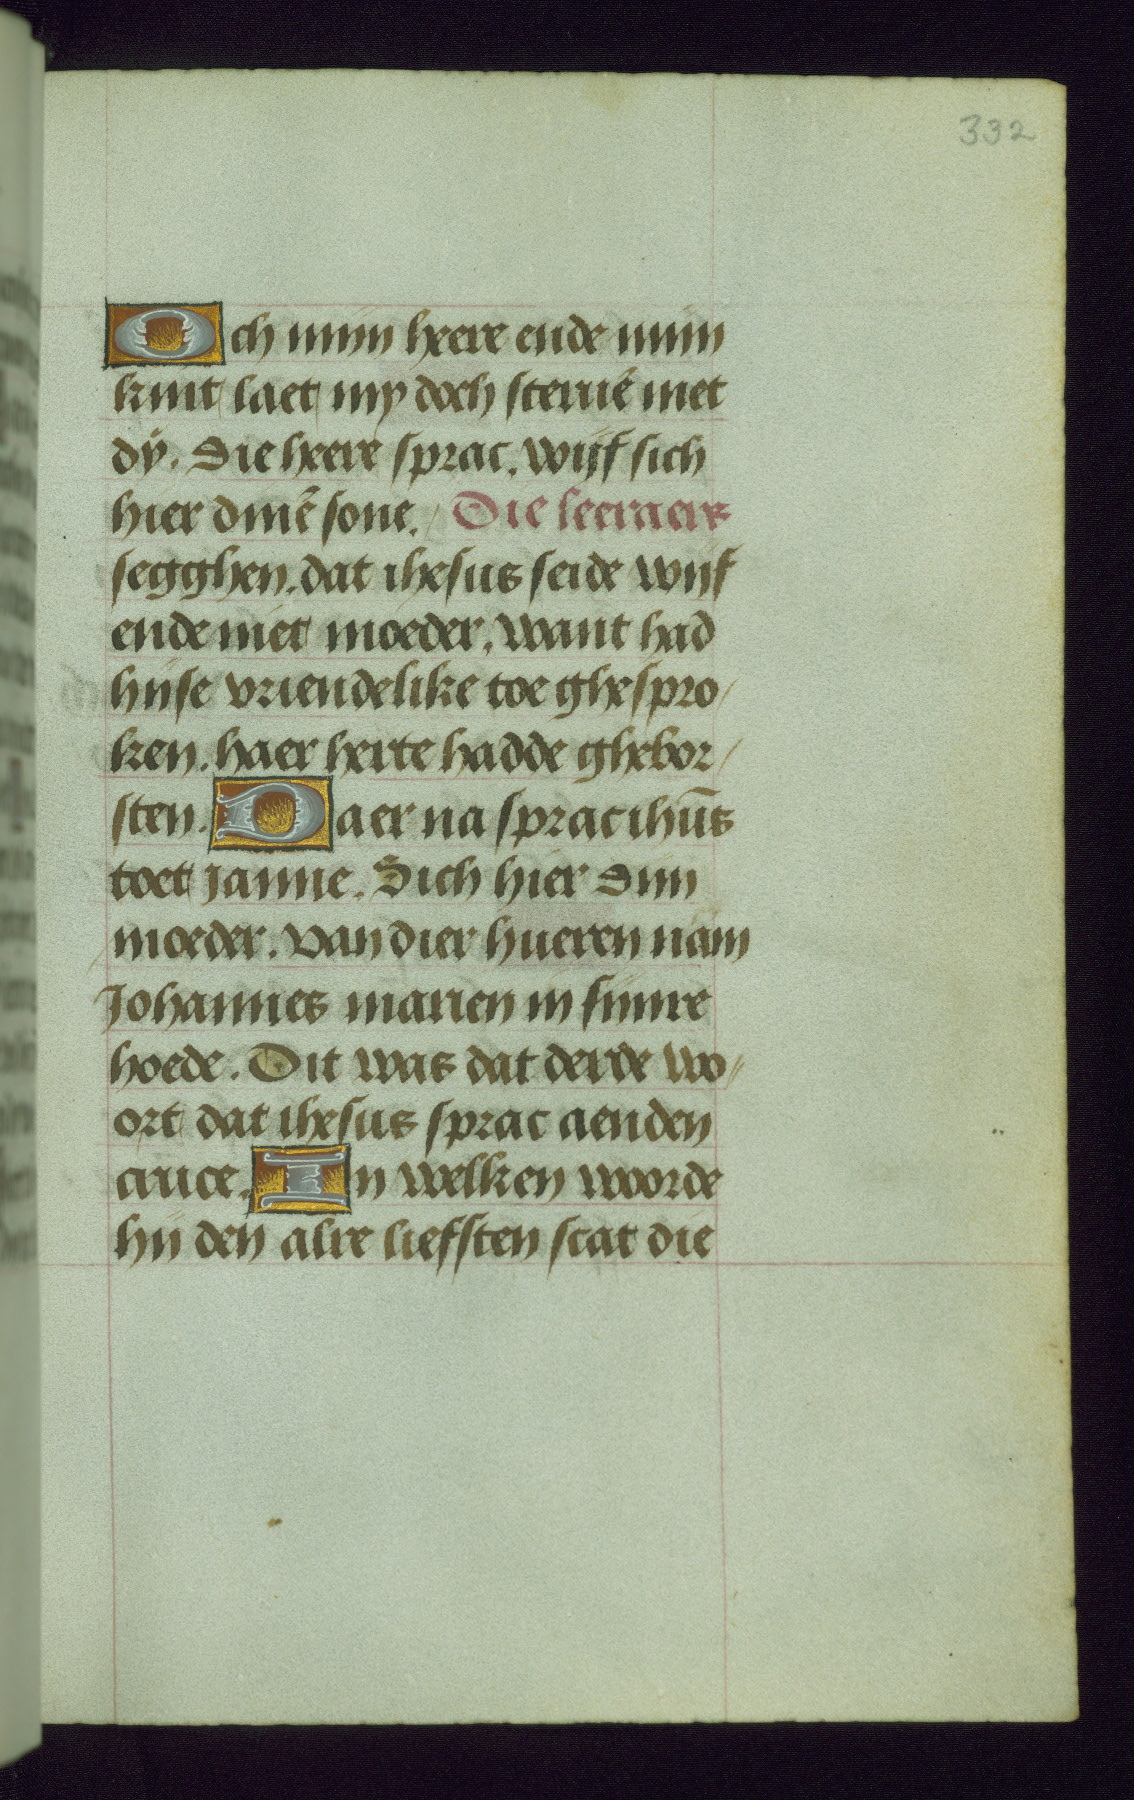 332
Och mijn heere ende mijn
kint laet my doch steruē met
dÿ. Die heere sprac. wijf sich
hier dinē sone. Die leeraers
segghen. dat ihesus seide wijf
ende niet moeder. want had
hijse vriendelike toe ghespro/
ken. haer herte hadde ghebor/
sten. Daer na sprac ihūs
toet Janne. Sich hier dijn
moeder. van dier hueren nam
Johannes marien in sijnre
hoede. Dit was dat derde wo//
ort dat ihesus sprac aenden
cruce. In welken woorde
hij den alre liefsten scat die